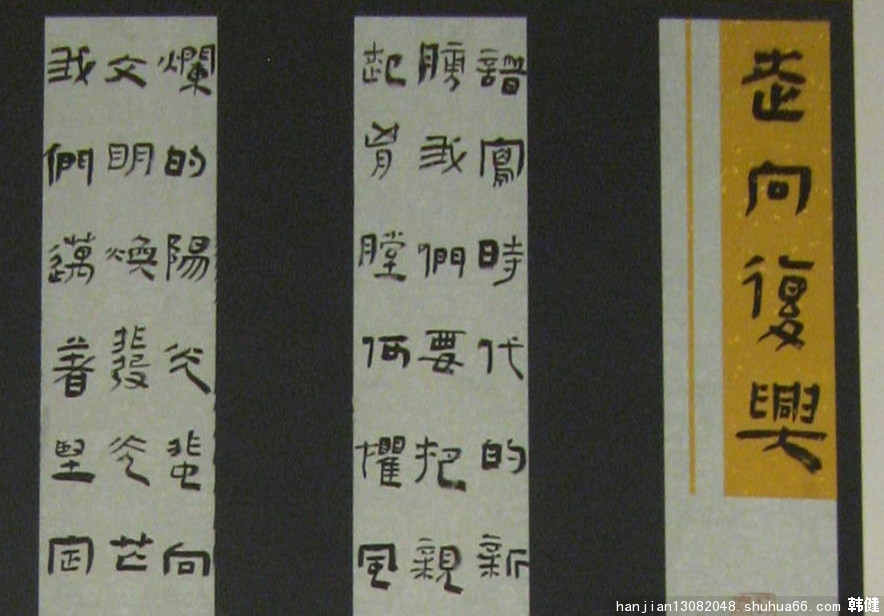 走向復興
譜寫時代的新
我們要把親
起胷膛何懼風
爛的陽光蜚向
文明煥發光芒
我們邁著堅定
hanjian13082048.shuhua66.com 韩健